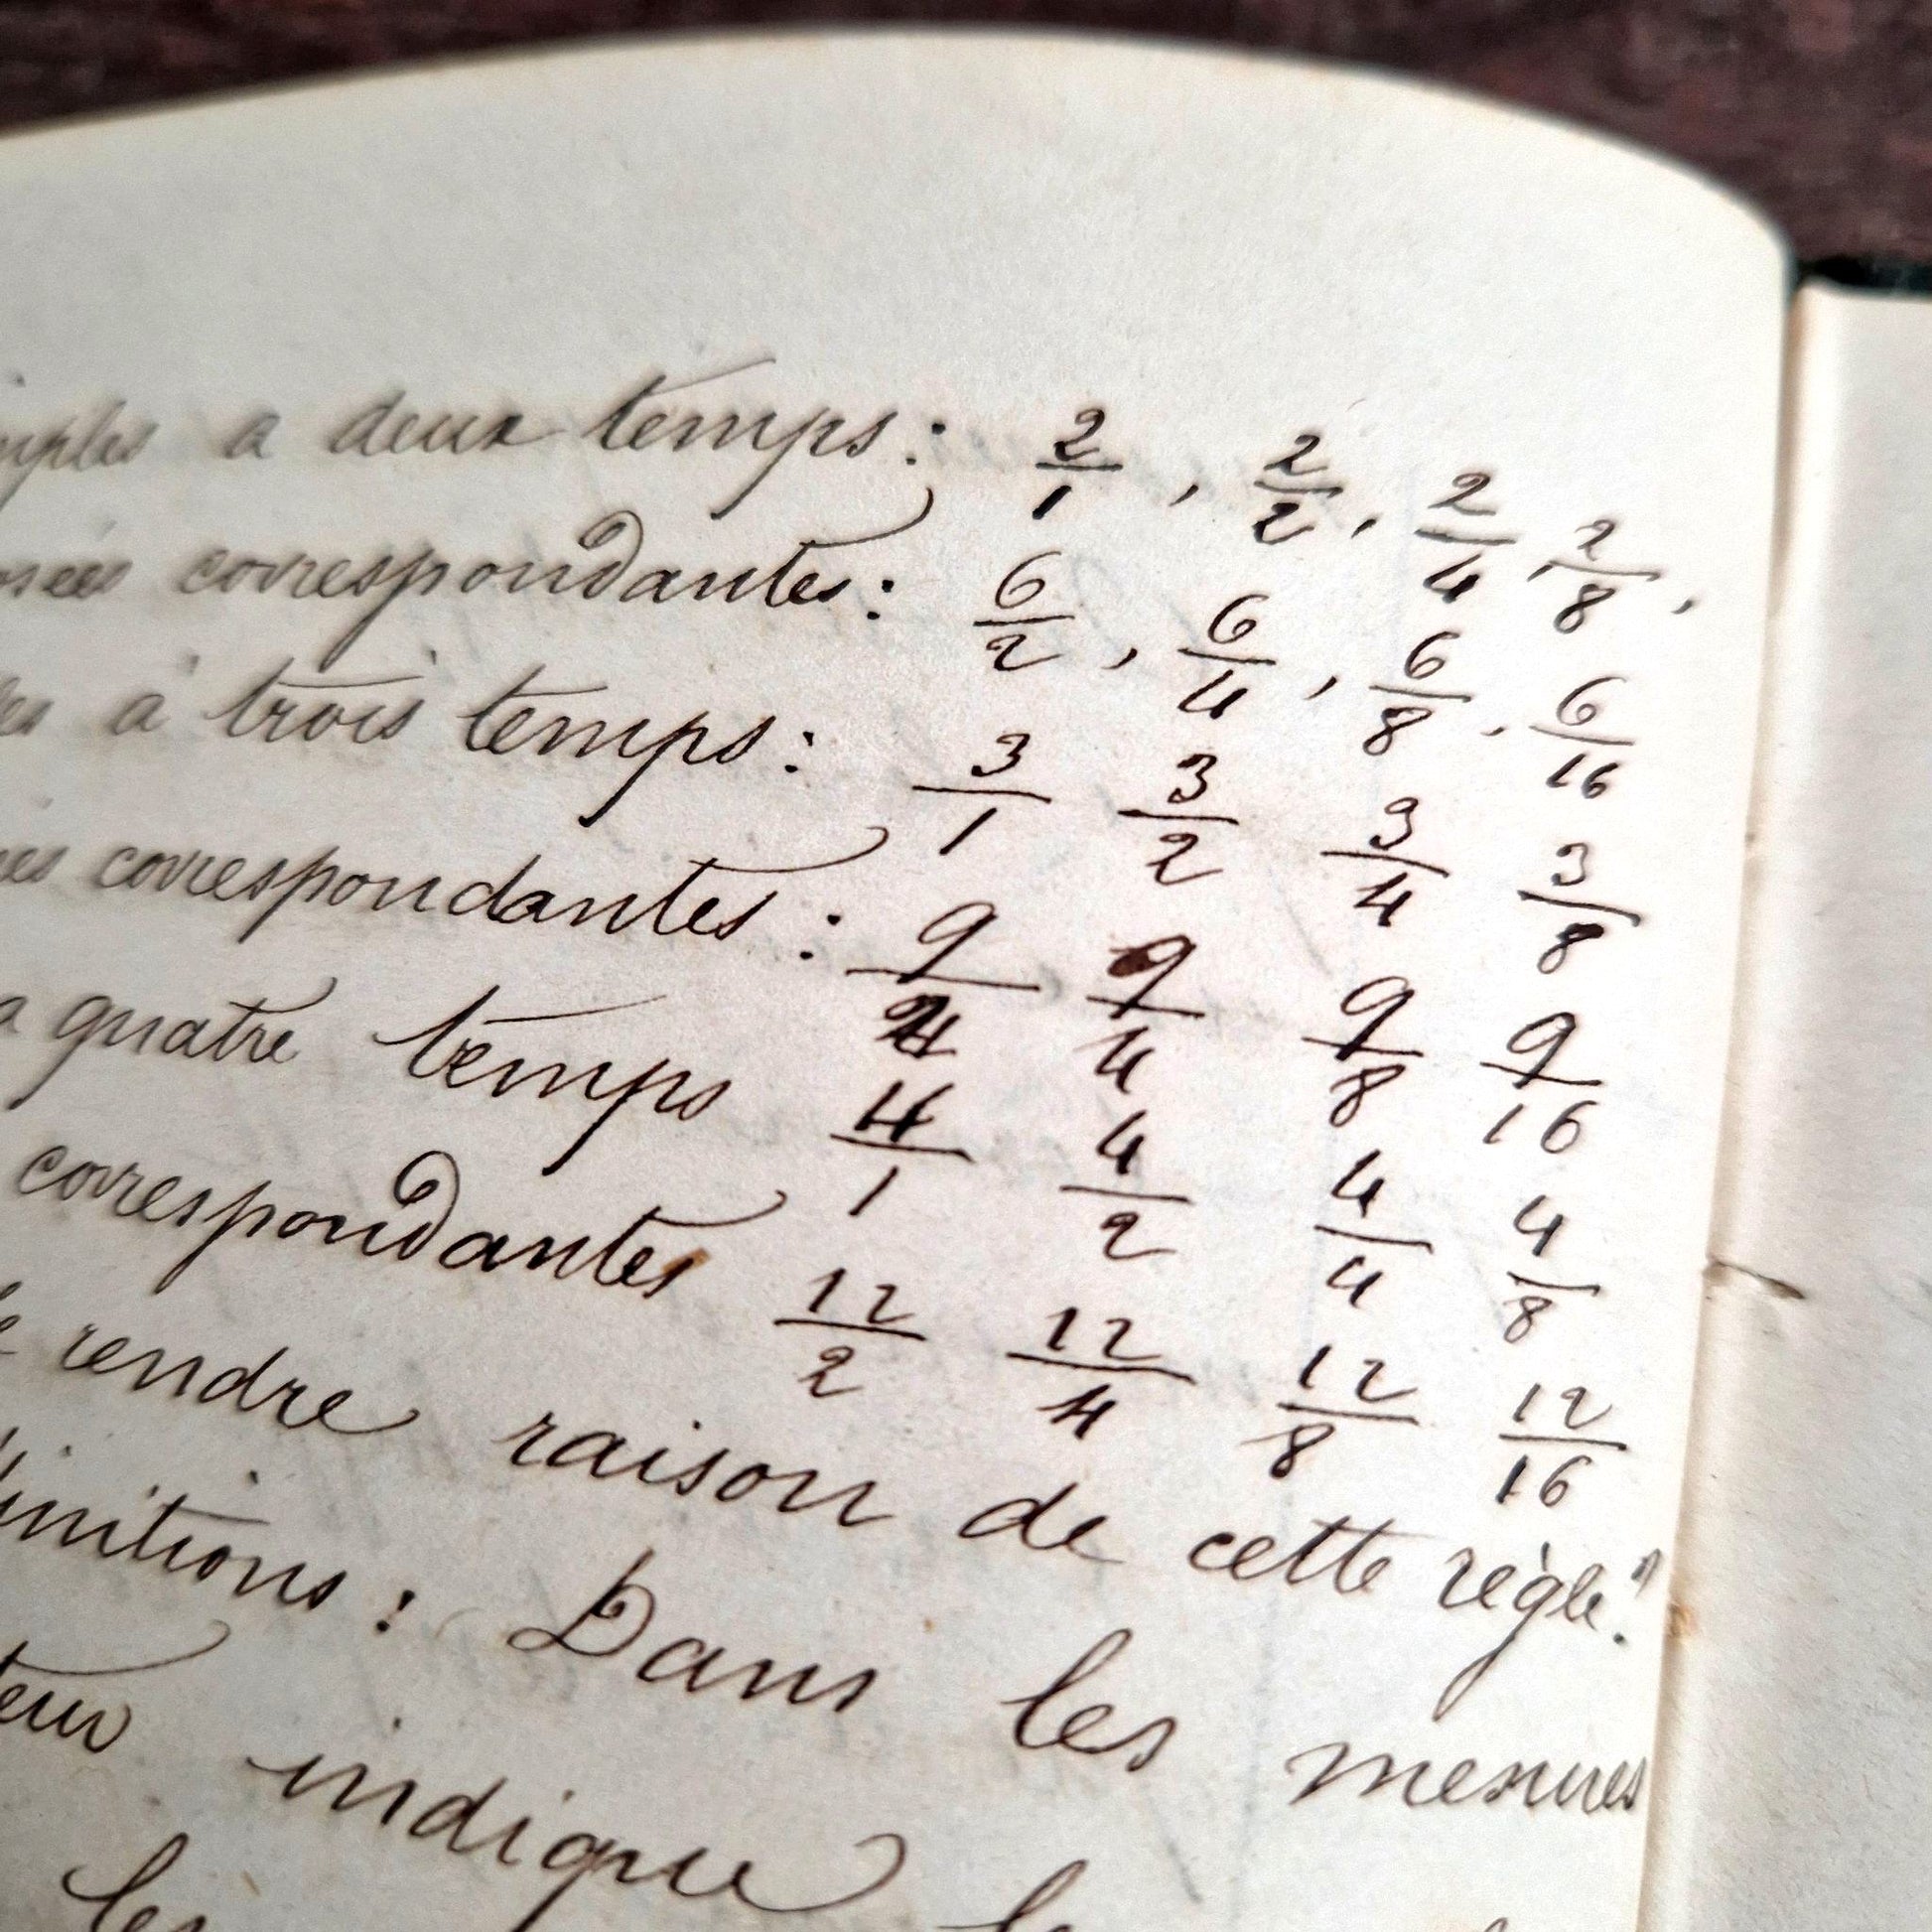 mples a deux temps : 2/1 , 2/2 , 2/4 , 2/8 ,
osées correspondantes : 6/2 , 6/4 , 6/8 , 6/16
les à trois temps : 3/1 3/2 3/4 3/8
ées correspondantes : 9/2 9/4 9/8 9/16
a quatre temps 4/1 4/2 4/4 4/8
correspondantes 12/2 12/4 12/8 12/16
rendre raison de cette règle."
initions : Dans les mesures
teur indique
les